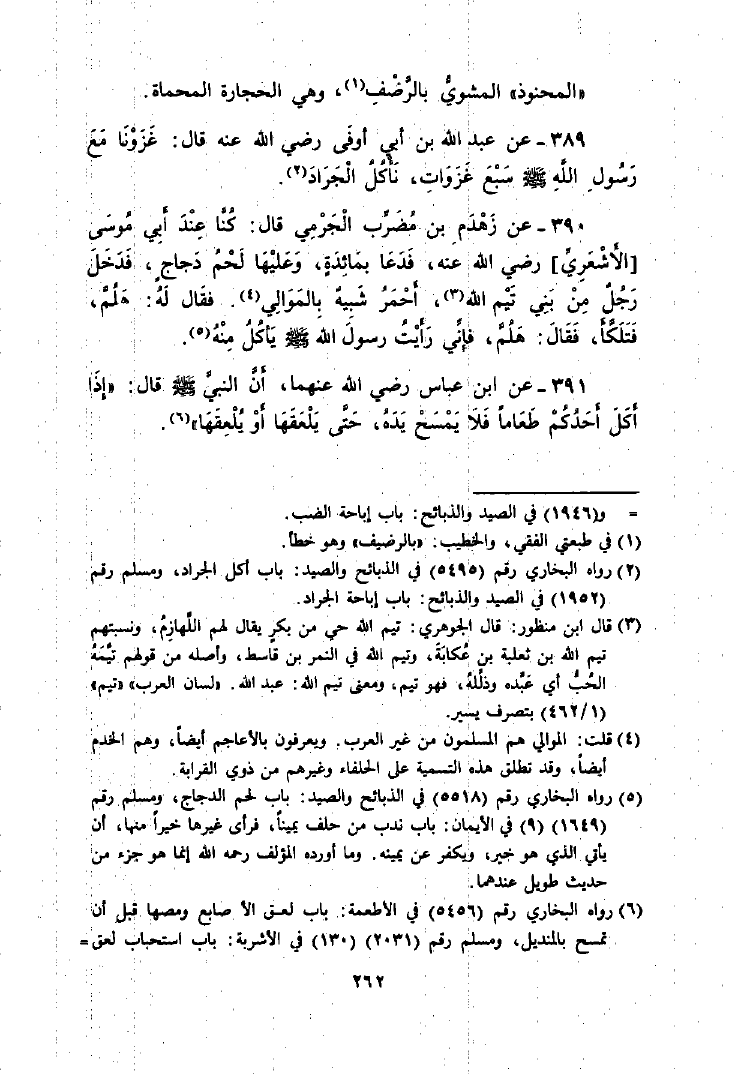 «المحنوذ» المشويُّ بالرَّضْفِ(١)، وهي الحجارة المحماة.
٣٨٩ - عن عبد الله بن أبي أوفَى رضي الله عنه قال: غَزَوْنَا مَعَ
رَسُولِ اللَّهِ ﷺ سَبْعَ غَزَوَاتٍ، نَأْكُلُ الْجَرَادَ(٢).
٣٩٠ - عن زَهْدَمِ بن مُضَرِّب الْجَرْمِي قال: كُنَّا عِنْدَ أَبِي مُوسَى
[الأَشْعَرِيِّ] رضي الله عنه، فَدَعَا بِمَائِدَةٍ، وَعَلَيْهَا لَحْمُ دَجاجٍ، فَدَخَلَ
رَجُلٌ مِنْ بَنِي تَيْمِ الله(٣)، أَحْمَرُ شَبِيهٌ بِالمَوَالِي(٤). فقَال لَهُ: هَلُمَّ،
فَتَلَكَّأَ، فَقَالَ: هَلُمَّ، فإِنِّي رَأَيْتُ رسولَ الله ﷺ يَأْكُلُ مِنْهُ(٥).
٣٩١ - عن ابن عباس رضي الله عنهما، أَنَّ النبيَّ ﷺ قال: «إِذَا
أَكَلَ أَحَدُكُمْ طَعَاماً فَلَا يَمْسَحْ يَدَهُ، حَتَّى يَلْعَقَهَا أَوْ يُلْعِقَهَا»(٦).
= و(١٩٤٦) في الصيد والذبائح: باب إباحة الضب.
(١) في طبعتي الفقي، والخطيب: «بالرضيف» وهو خطأ.
(٢) رواه البخاري رقم (٥٤٩٥) في الذبائح والصيد: باب أكل الجراد، ومسلم رقم
(١٩٥٢) في الصيد والذبائح: باب إباحة الجراد.
(٣) قال ابن منظور: قال الجوهري: تيم الله حي من بكرٍ يقال لهم اللَّهازِمُ، ونسبتهم
تيم الله بن ثعلبة بن عُكابَةَ، وتيم الله في النمر بن قاسط، وأصله من قولهم تيَّمَهُ
الحُبُّ أي عَبَّده وذلَّلهُ، فهو تيم، ومعنى تيم الله: عبد الله. «لسان العرب» «تيم»
(٤٦٢/١) بتصرف يسير.
(٤) قلت: الموالي هم المسلمون من غير العرب. ويعرفون بالأعاجم أيضاً، وهم الخدم
أيضاً، وقد تطلق هذه التسمية على الحلفاء وغيرهم من ذوي القرابة.
(٥) رواه البخاري رقم (٥٥١٨) في الذبائح والصيد: باب لحم الدجاج، ومسلم رقم
(١٦٤٩) (٩) في الأيمان: باب ندب من حلف يميناً، فرأى غيرها خيراً منها، أن
يأتي الذي هو خير، ويكفر عن يمينه. وما أورده المؤلف رحمه الله إنما هو جزء من
حديث طويل عندهما.
(٦) رواه البخاري رقم (٥٤٥٦) في الأطعمة: باب لعق الأ صابع ومصها قبل أن
تمسح بالمنديل، ومسلم رقم (٢٠٣١) (١٣٠) في الأشربة: باب استحباب لعق =
٢٦٢